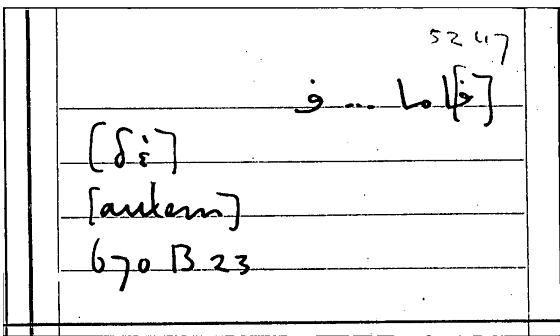 5247
[ف]اما ... ف
[δέ]
[autem]
670 B 23